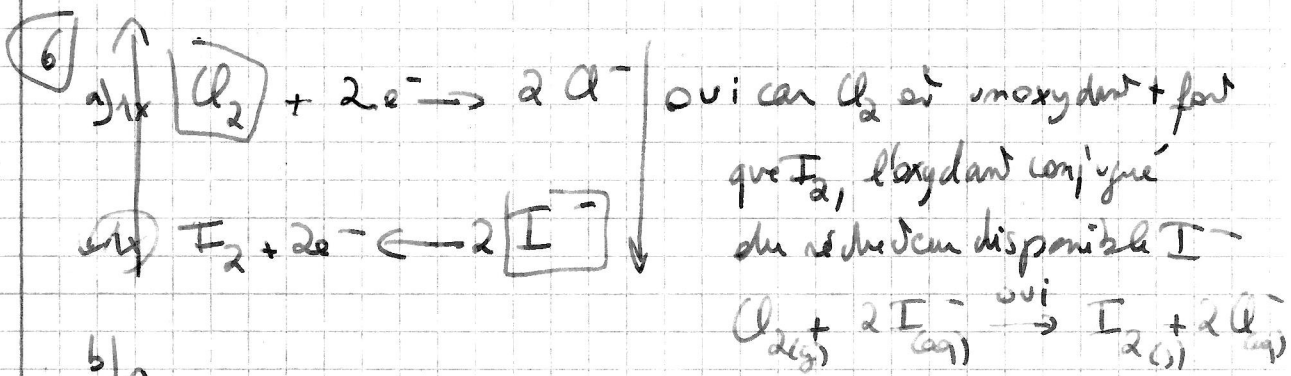 6
a) 1x Cl₂ + 2e⁻ → 2 Cl⁻ oui car Cl₂ est un oxydant + fort
que I₂, l'oxydant conjugué
1x I₂ + 2e⁻ ← 2 I⁻ du réducteur disponible I⁻
Cl₂(g) + 2 I⁻(aq) oui → I₂(s) + 2 Cl⁻(aq)
b)